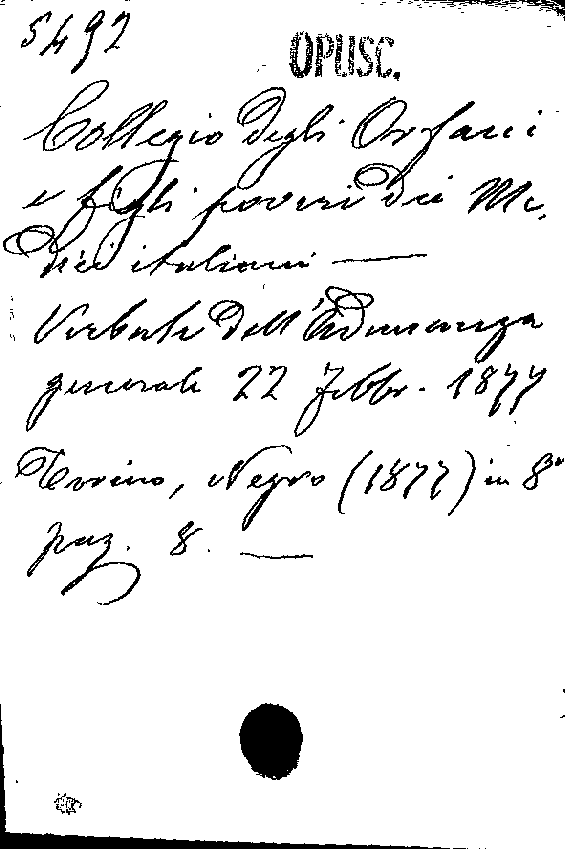 5492
OPUSC.
Collegio degli Orfani
e figli poveri dei Me-
dici italiani —
Verbale dell'Adunanza
generale 22 Febbr. 1877
Torino, Negro (1877) in 8º
pag. 8. —